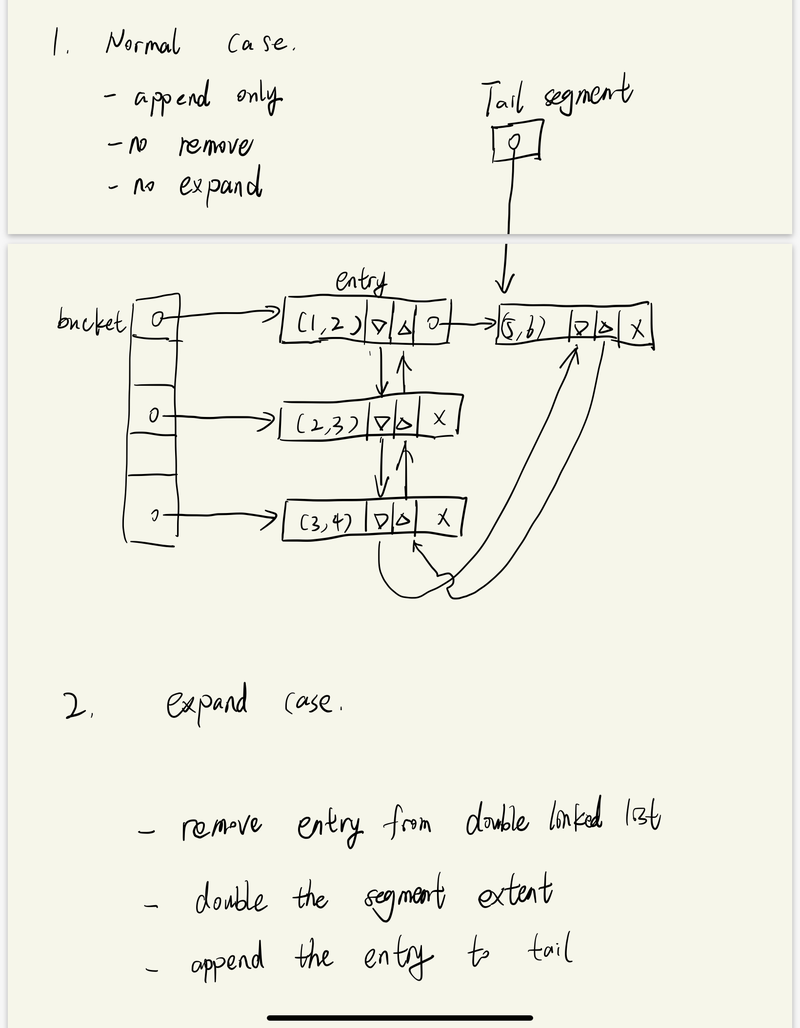 1. Normal case.
- append only
- no remove
- no expand
Tail segment
entry
bucket
(1,2)
(5,6)
(2,3)
X
X
(3,4)
X
2. expand case.
- remove entry from double linked list
- double the segment extent
- append the entry to tail